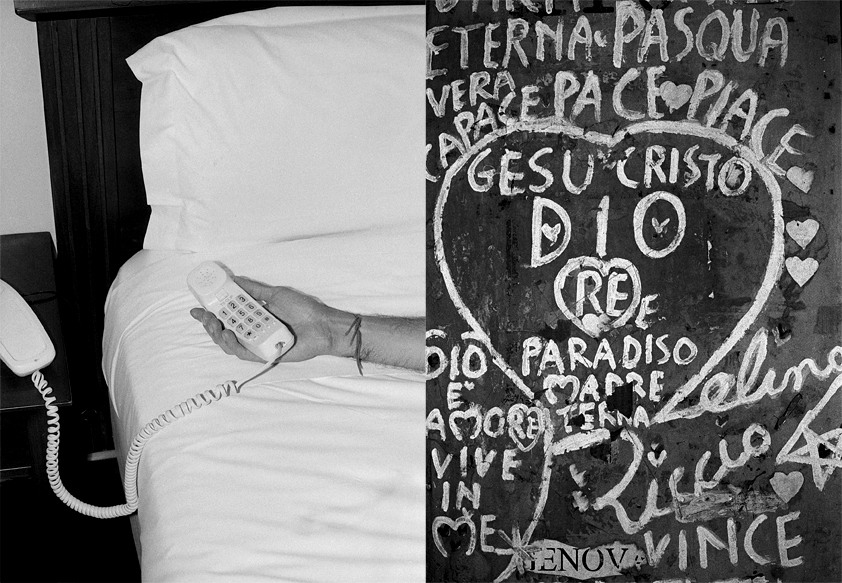 1 2 3
4 5 6
7 8 9
* 0 #
ETERNA PASQUA
VERA PACE PACE PIACE
PACE
GESU CRISTO
DIO
RE E
PARADISO
MADRE
TERNA
DIO
E
AMORE RE
VIVE
IN
ME
Zelino
Riccio
VINCE
ENOV